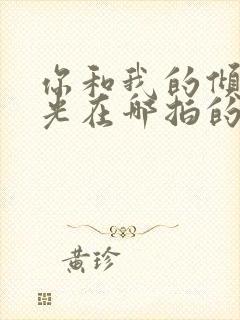 你和我的倾
光在哪拍的
黄珍